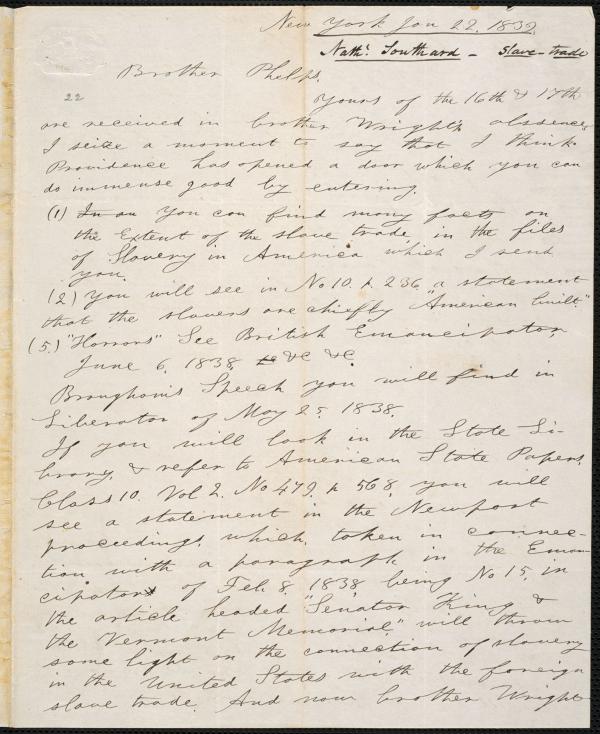 New York Jan 22. 1839.
Nathl. Southard - Slave-trade
Brother Phelps,
22
Yours of the 16th & 17th
are received in brother Wright's absence,
I seize a moment to say that I think
Providence has opened a door which you can
do immense good by entering.
(1) In an You can find many facts on
the Extent of the slave trade in the files
of Slavery in America which I send
you.
(2) You will see in No 10. p. 236, a statement
that the slavers are chiefly "American built."
(5.) "Horrors" See British Emancipator,
June 6, 1838, &c &c
Brougham's Speech you will find in
Liberator of May 25, 1838.
If you will look in the State Li-
brary, & refer to American State Papers,
Class 10. Vol 2. No 479. p 568, you will
see a statement in the Newport
proceedings, which, taken in connec-
tion with a paragraph in the Eman-
cipator of Feb. 8, 1838 being No 15, in
the article headed "Senator King &
the Vermont Memorial," will throw
some light on the connection of slavery
in the United States with the foreign
slave trade. And now brother Wright